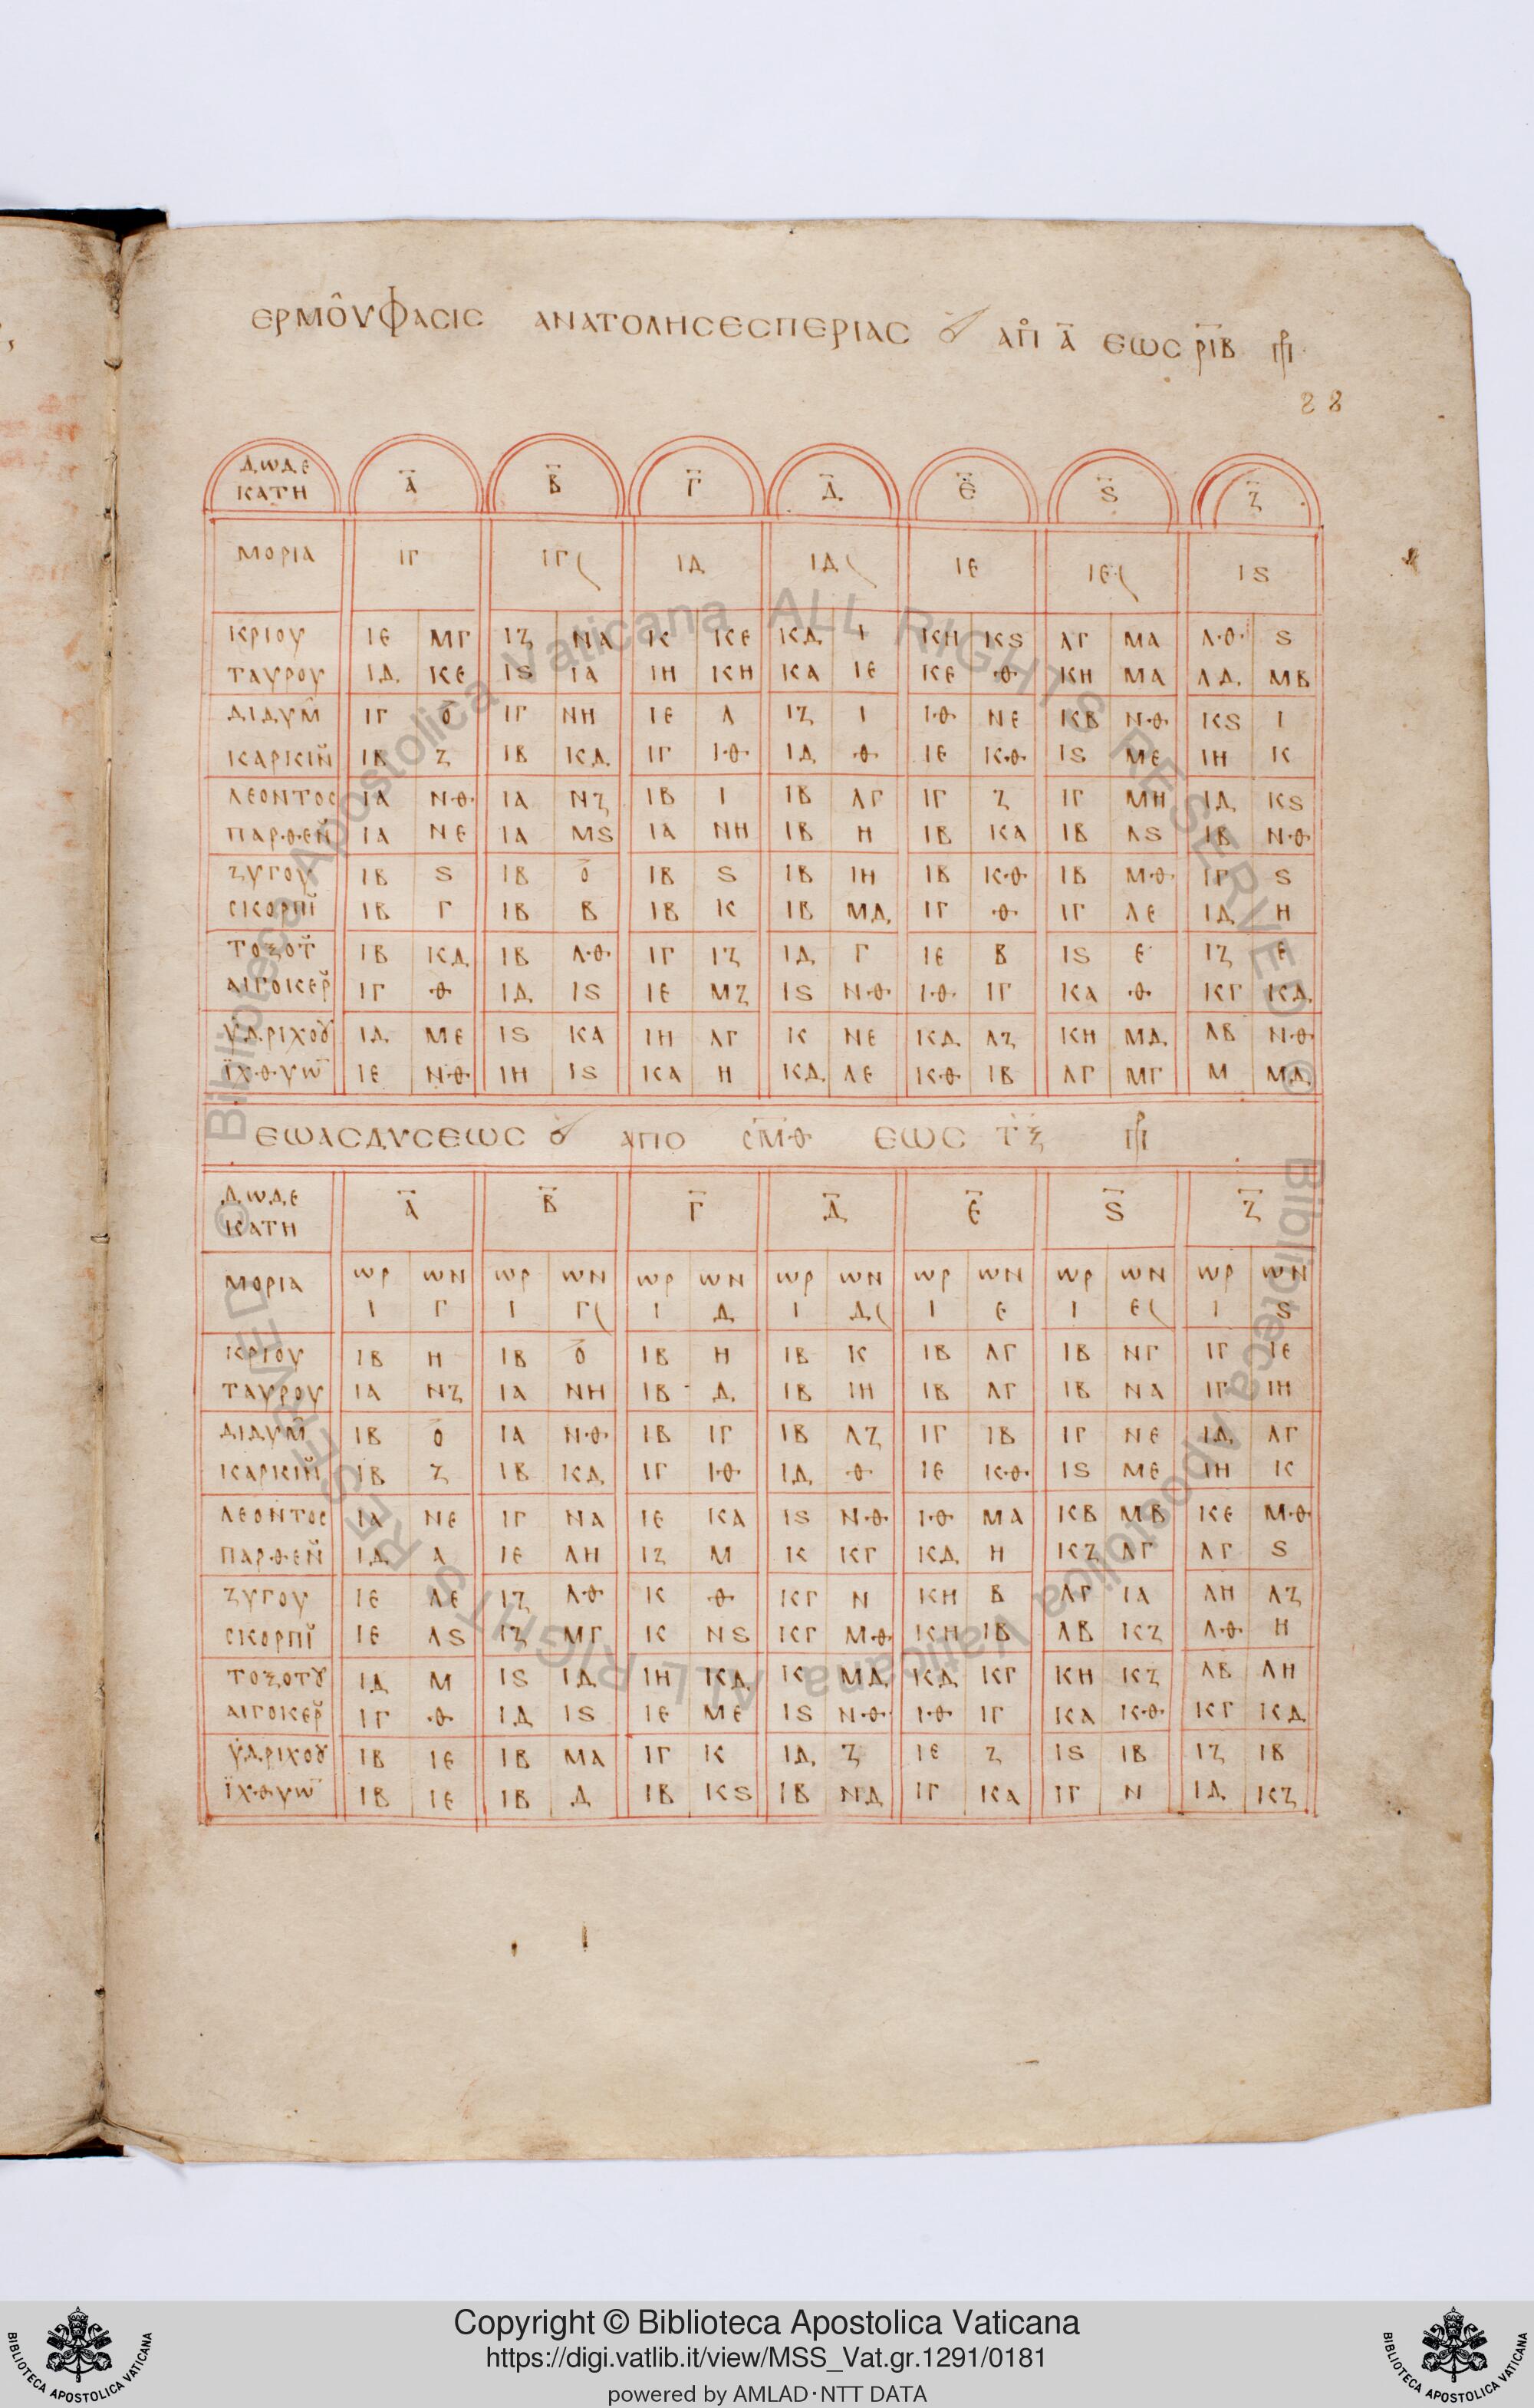 ΕΡΜΟΥ ΦΑϹΙϹ ΑΝΑΤΟΛΗϹ ΕϹΠΕΡΙΑϹ ΑΠ Α ΕΩϹ ΡΙΒ
88
ΔΩΔΕ
ΚΑΤΗ Α Β Γ Δ Ε Ϛ Ζ
ΜΟΡΙΑ ΙΓ ΙΓ ΙΔ ΙΔ ΙΕ ΙΕ ΙϚ
ΚΡΙΟΥ ΙΕ ΜΓ ΙΖ ΝΑ Κ ΚΕ ΚΔ Ι ΚΗ ΚϚ ΛΓ ΜΑ ΛΘ Ϛ
ΤΑΥΡΟΥ ΙΔ ΚΕ ΙϚ ΙΑ ΙΗ ΚΗ ΚΑ ΙΕ ΚΕ Θ ΚΗ ΜΑ ΛΔ ΜΒ
ΔΙΔΥΜ ΙΓ Ο ΙΓ ΝΗ ΙΕ Λ ΙΖ Ι ΙΘ ΝΕ ΚΒ ΝΘ ΚϚ Ι
ΚΑΡΚΙΝ ΙΒ Ζ ΙΒ ΚΔ ΙΓ ΙΘ ΙΔ Θ ΙΕ ΚΘ ΙϚ ΜΕ ΙΗ Κ
ΛΕΟΝΤΟϹ ΙΑ ΝΘ ΙΑ ΝΖ ΙΒ Ι ΙΒ ΛΓ ΙΓ Ζ ΙΓ ΜΗ ΙΔ ΚϚ
ΠΑΡΘΕΝ ΙΑ ΝΕ ΙΑ ΜϚ ΙΑ ΝΗ ΙΒ Η ΙΒ ΚΑ ΙΒ ΛϚ ΙΒ ΝΘ
ΖΥΓΟΥ ΙΒ Ϛ ΙΒ Ο ΙΒ Ϛ ΙΒ ΙΗ ΙΒ ΚΘ ΙΒ ΜΘ ΙΓ Ϛ
ϹΚΟΡΠΙ ΙΒ Γ ΙΒ Β ΙΒ Κ ΙΒ ΜΔ ΙΓ Θ ΙΓ ΛΕ ΙΔ Η
ΤΟΞΟΤ ΙΒ ΚΔ ΙΒ ΛΘ ΙΓ ΙΖ ΙΔ Γ ΙΕ Β ΙϚ Ε ΙΖ Ε
ΑΙΓΟΚΕΡ ΙΓ Θ ΙΔ ΙϚ ΙΕ ΜΖ ΙϚ ΝΘ ΙΘ ΙΓ ΚΑ Θ ΚΓ ΚΔ
ΥΔΡΙΧΟΥ ΙΔ ΜΕ ΙϚ ΚΑ ΙΗ ΛΓ Κ ΝΕ ΚΔ ΛΖ ΚΗ ΜΔ ΛΒ ΝΘ
ΙΧΘΥΩ ΙΕ ΝΘ ΙΗ ΙϚ ΚΑ Η ΚΔ ΛΕ ΚΘ ΙΒ ΛΓ ΜΓ Μ ΜΔ
ΕΩΑϹ ΔΥϹΕΩϹ ΑΠΟ ϹΜΘ ΕΩϹ ΤΞ
ΔΩΔΕ
ΚΑΤΗ Α Β Γ Δ Ε Ϛ Ζ
ΜΟΡΙΑ ΩΡ ΩΝ ΩΡ ΩΝ ΩΡ ΩΝ ΩΡ ΩΝ ΩΡ ΩΝ ΩΡ ΩΝ ΩΡ ΩΝ
Ι Γ Ι Γ Ι Δ Ι Δ Ι Ε Ι Ε Ι Ϛ
ΚΡΙΟΥ ΙΒ Η ΙΒ Ο ΙΒ Η ΙΒ Κ ΙΒ ΛΓ ΙΒ ΝΓ ΙΓ ΙΕ
ΤΑΥΡΟΥ ΙΑ ΝΖ ΙΑ ΝΗ ΙΒ Δ ΙΒ ΙΗ ΙΒ ΛΓ ΙΒ ΝΑ ΙΓ ΙΗ
ΔΙΔΥΜ ΙΒ Ο ΙΑ ΝΘ ΙΒ ΙΓ ΙΒ ΛΖ ΙΓ ΙΒ ΙΓ ΝΕ ΙΔ ΛΓ
ΚΑΡΚΙΝ ΙΒ Ζ ΙΒ ΚΔ ΙΓ ΙΘ ΙΔ Θ ΙΕ ΚΘ ΙϚ ΜΕ ΙΗ Κ
ΛΕΟΝΤΟϹ ΙΑ ΝΕ ΙΓ ΝΑ ΙΕ ΚΑ ΙϚ ΝΘ ΙΘ ΜΑ ΚΒ ΜΒ ΚΕ ΜΘ
ΠΑΡΘΕΝ ΙΔ Α ΙΕ ΛΗ ΙΖ Μ Κ ΚΓ ΚΔ Η ΚΖ ΛΓ ΛΓ Ϛ
ΖΥΓΟΥ ΙΕ ΛΕ ΙΖ ΛΘ Κ Θ ΚΓ Ν ΚΗ Β ΛΓ ΙΑ ΛΗ ΛΖ
ϹΚΟΡΠΙ ΙΕ ΛϚ ΙΖ ΜΓ Κ ΝϚ ΚΓ ΜΘ ΚΗ ΙΒ ΛΒ ΚΖ ΛΘ Η
ΤΟΞΟΤΟΥ ΙΔ Μ ΙϚ ΙΔ ΙΗ ΚΔ Κ ΜΔ ΚΔ ΚΓ ΚΗ ΚΖ ΛΒ ΛΗ
ΑΙΓΟΚΕΡ ΙΓ Θ ΙΔ ΙϚ ΙΕ ΜΕ ΙϚ ΝΘ ΙΘ ΙΓ ΚΑ ΚΘ ΚΓ ΚΔ
ΥΔΡΙΧΟΥ ΙΒ ΙΕ ΙΒ ΜΑ ΙΓ Κ ΙΔ Ζ ΙΕ Ζ ΙϚ ΙΒ ΙΖ ΙΒ
ΙΧΘΥΩ ΙΒ ΙΕ ΙΒ Δ ΙΒ ΚϚ ΙΒ ΝΔ ΙΓ ΚΑ ΙΓ Ν ΙΔ ΚΖ
© Biblioteca Apostolica Vaticana ALL RIGHTS RESERVED
© Biblioteca Apostolica Vaticana ALL RIGHTS RESERVED
Copyright © Biblioteca Apostolica Vaticana
https://digi.vatlib.it/view/MSS_Vat.gr.1291/0181
powered by AMLAD·NTT DATA
BIBLIOTECA APOSTOLICA VATICANA
BIBLIOTECA APOSTOLICA VATICANA